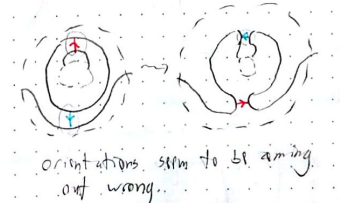 orientations seem to be coming
out wrong..